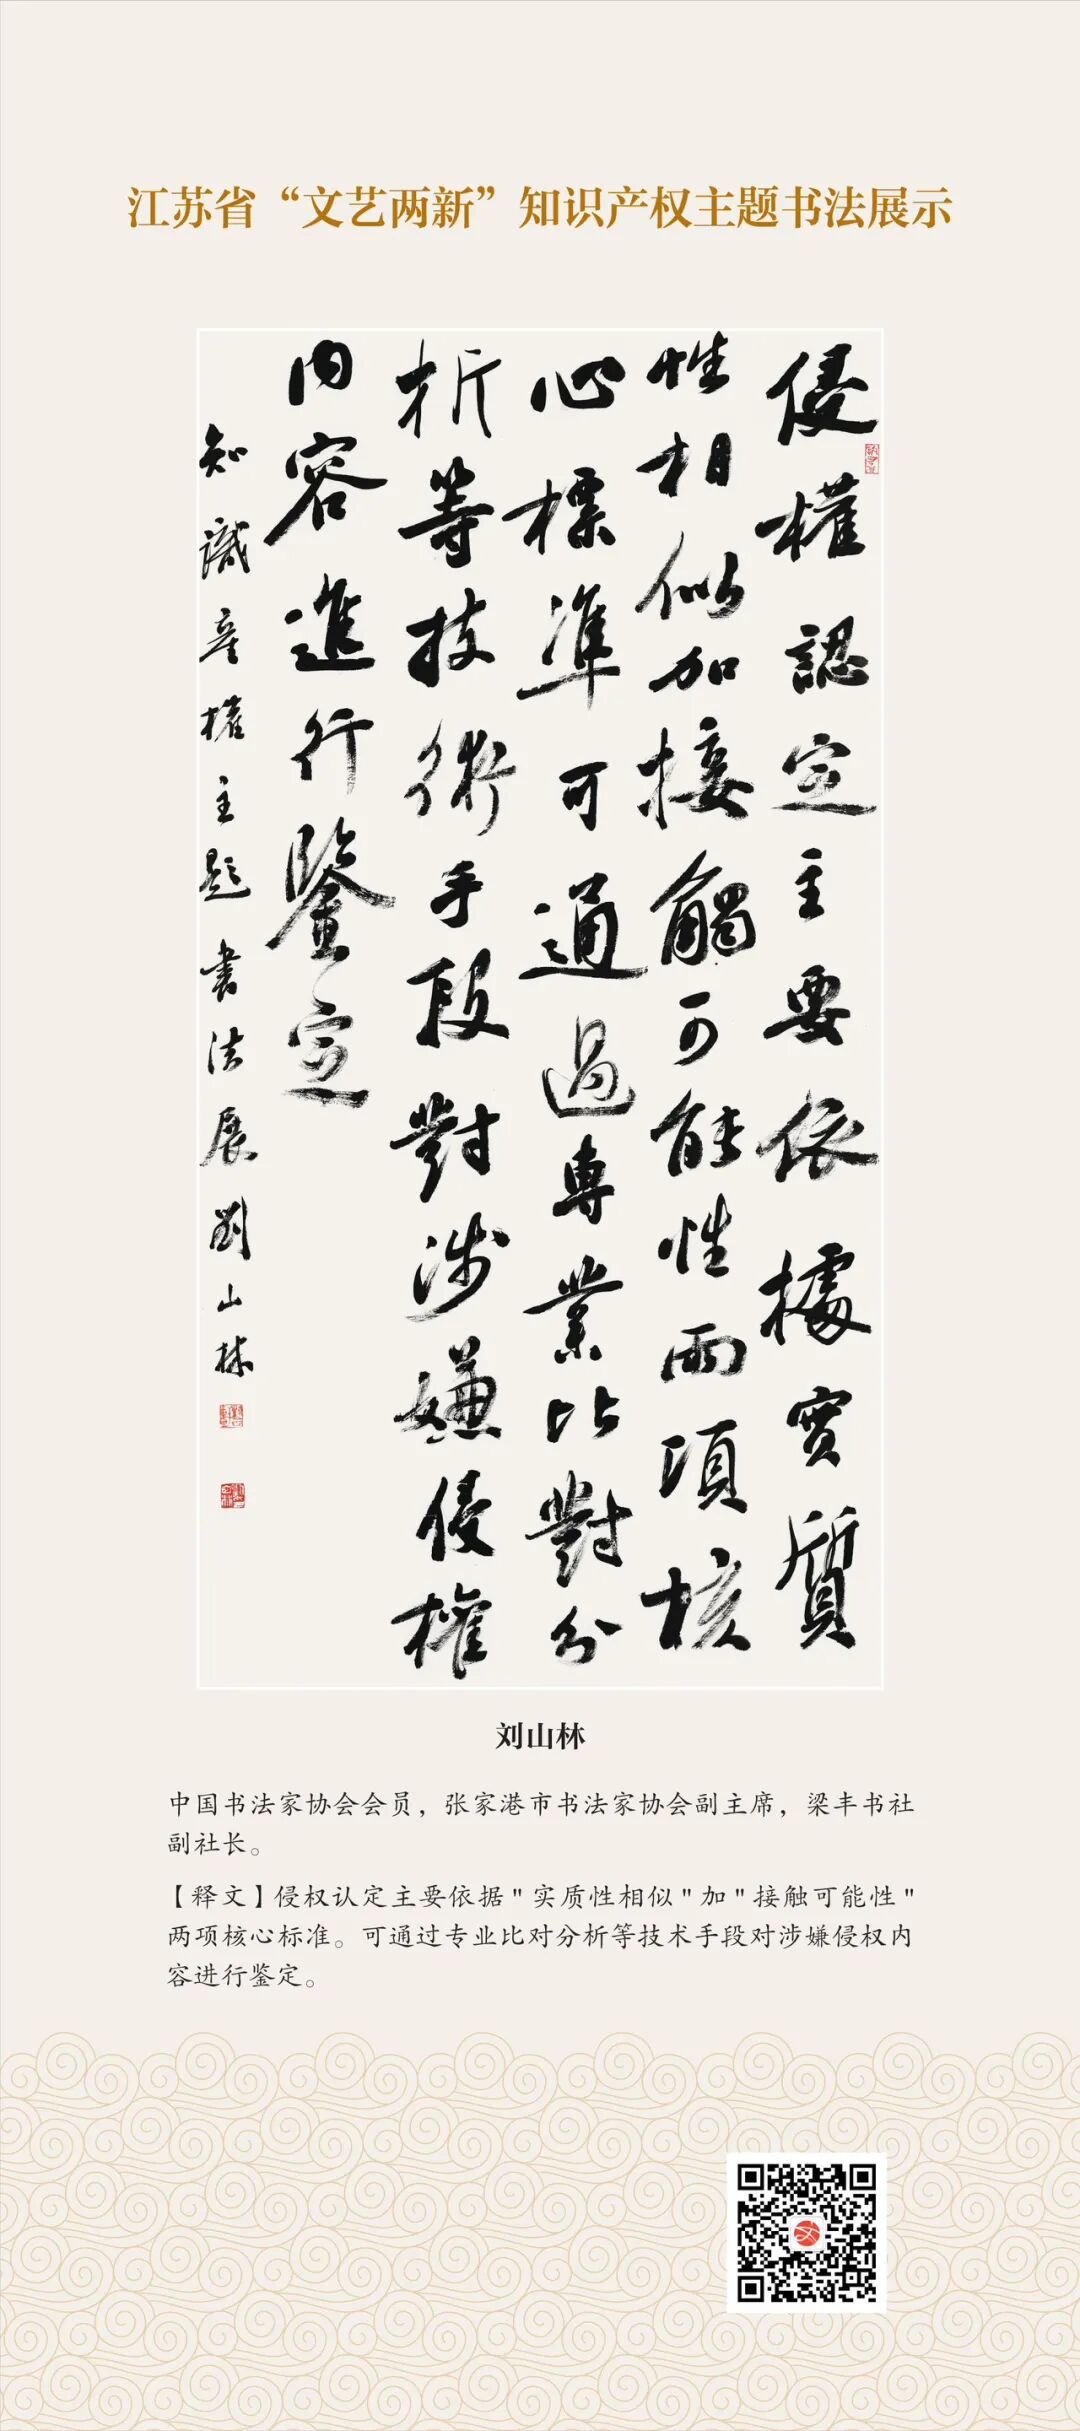 江苏省“文艺两新”知识产权主题书法展示
侵權認定主要依據實質
性相似加接觸可能性兩項核
心標準可通過專業比對分
析等技術手段對涉嫌侵權
内容進行鑒定
知識產權主題書法展劉山林
刘山林
中国书法家协会会员，张家港市书法家协会副主席，梁丰书社
副社长。
【释文】侵权认定主要依据"实质性相似"加"接触可能性"
两项核心标准。可通过专业比对分析等技术手段对涉嫌侵权内
容进行鉴定。